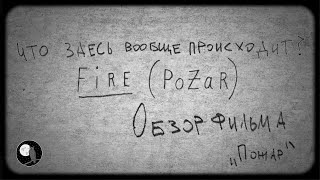 ЧТО ЗДЕСЬ ВООБЩЕ ПРОИСХОДИТ?
FiRE (PoZaR)
ОБЗОР ФИЛЬМА
„Пожар"